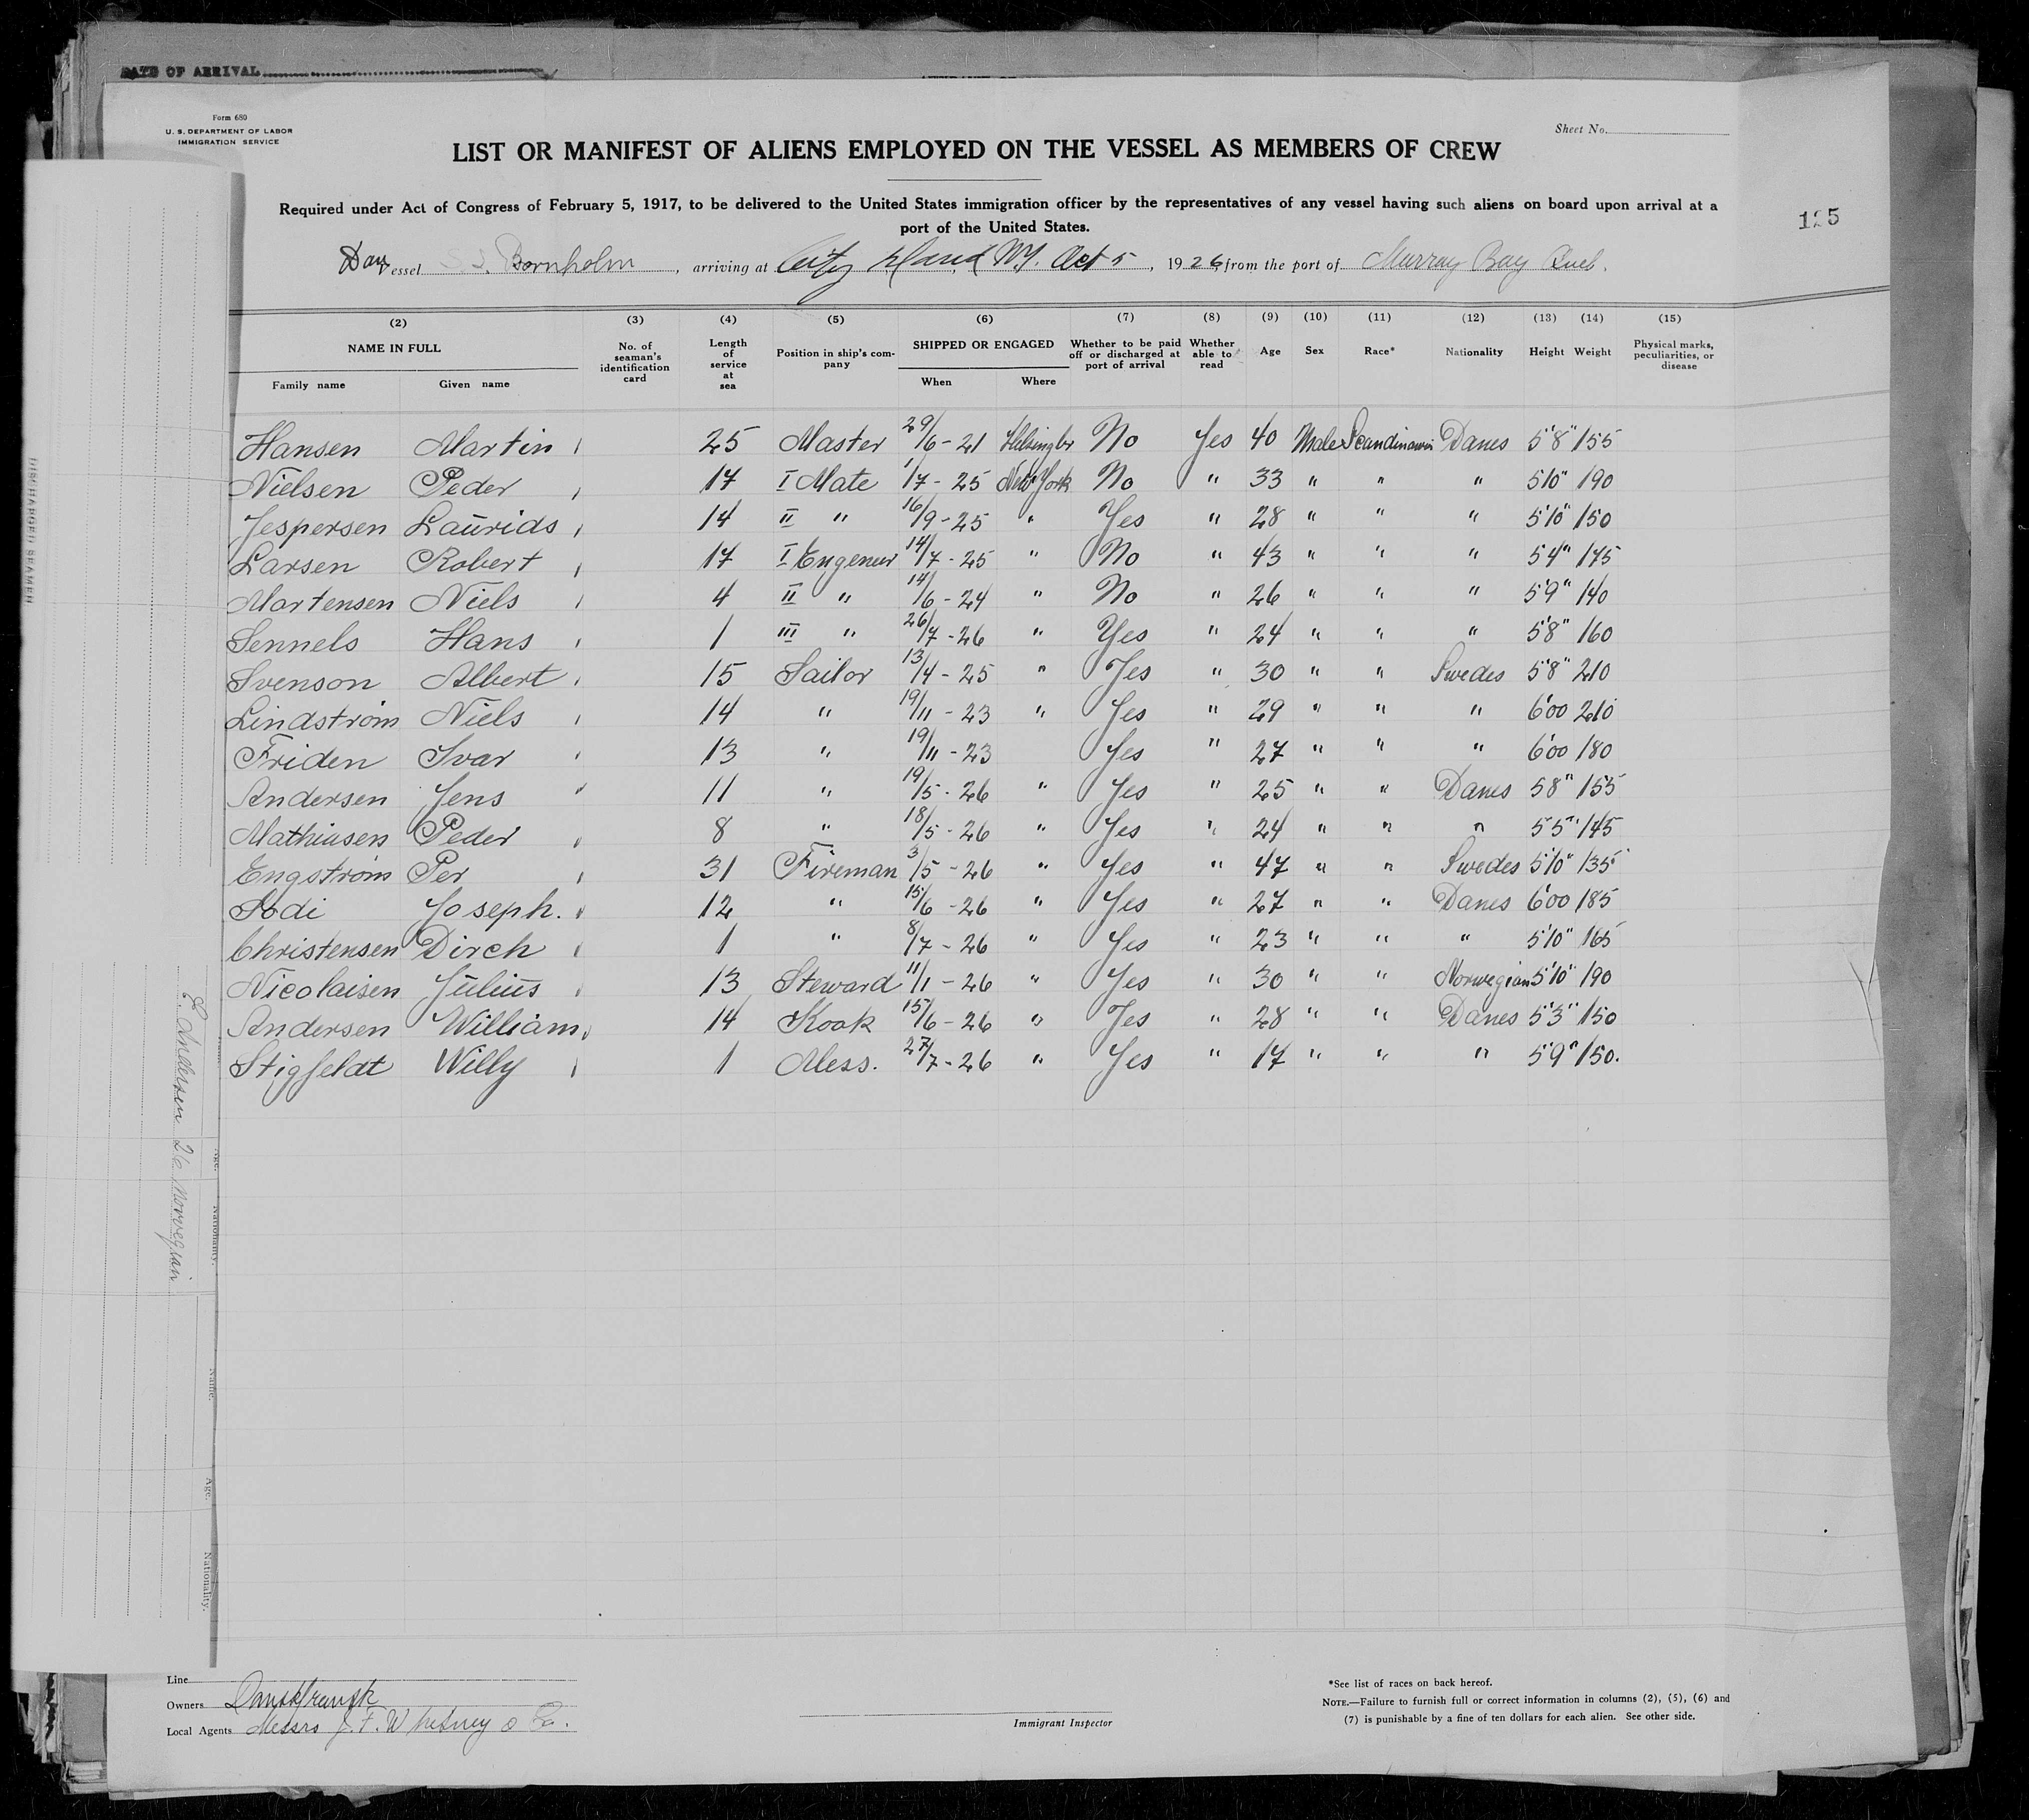 DATE OF ARRIVAL
Form 680
U. S. DEPARTMENT OF LABOR
IMMIGRATION SERVICE
Sheet No.
LIST OR MANIFEST OF ALIENS EMPLOYED ON THE VESSEL AS MEMBERS OF CREW
Required under Act of Congress of February 5, 1917, to be delivered to the United States immigration officer by the representatives of any vessel having such aliens on board upon arrival at a
port of the United States.
125
Dan Vessel S.S. Bornholm, arriving at City Island NY. Oct 5, 1926, from the port of Murray Bay Queb.
(2) (3) (4) (5) (6) (7) (8) (9) (10) (11) (12) (13) (14) (15)
NAME IN FULL No. of seaman's identification card Length of service at sea Position in ship's company SHIPPED OR ENGAGED Whether to be paid off or discharged at port of arrival Whether able to read Age Sex Race* Nationality Height Weight Physical marks, peculiarities, or disease
Family name Given name When Where
Hansen Martin 25 Master 29/6 - 21 Helsingbr No Yes 40 Male Scandinavien Danes 5'8" 155
Nielsen Peder 17 I Mate 1/7 - 25 New York No " 33 " " " 5'10" 190
Jespersen Laurids 14 II " 16/9 - 25 " Yes " 28 " " " 5'10" 150
Larsen Robert 17 I Engeneur 14/7 - 25 " No " 43 " " " 5'4" 175
Martensen Niels 4 II " 14/6 - 24 " No " 26 " " " 5'9" 140
Sennels Hans 1 III " 26/7 - 26 " Yes " 24 " " " 5'8" 160
Svenson Albert 15 Sailor 13/4 - 25 " Yes " 30 " " Swedes 5'8" 210
Lindström Niels 14 " 19/11 - 23 " Yes " 29 " " " 6'00 210
Friden Ivar 13 " 19/11 - 23 Yes " 27 " " " 6'00 180
Andersen Jens 11 " 19/5 - 26 " Yes " 25 " " Danes 5'8" 155
Mathiasen Peder 8 " 18/5 - 26 " Yes " 24 " " " 5'5" 145
Engström Per 31 Fireman 3/5 - 26 " Yes " 47 " " Swedes 5'10" 135
Joseph. 12 " 15/6 - 26 " Yes " 27 " " Danes 6'00 185
Christensen Dirch 1 " 8/7 - 26 " Yes " 23 " " " 5'10" 165
Nicolaisen Julius 13 Steward 11/1 - 26 " Yes " 30 " " Norwegian 5'10" 190
Andersen William 14 Kook 15/6 - 26 " Yes " 28 " " Danes 5'3" 150
Stigfeldt Willy 1 Mess. 27/7 - 26 " Yes " 17 " " " 5'9" 150.
DISCHARGED SEAMEN
E. Andersen 26 Norwegian
Age. Nationality. Name. Age. Nationality.
Line
Owners Dansk Fransk
Local Agents Messrs J. F. Whitney & Co.
Immigrant Inspector
*See list of races on back hereof.
NOTE.—Failure to furnish full or correct information in columns (2), (5), (6) and
(7) is punishable by a fine of ten dollars for each alien. See other side.